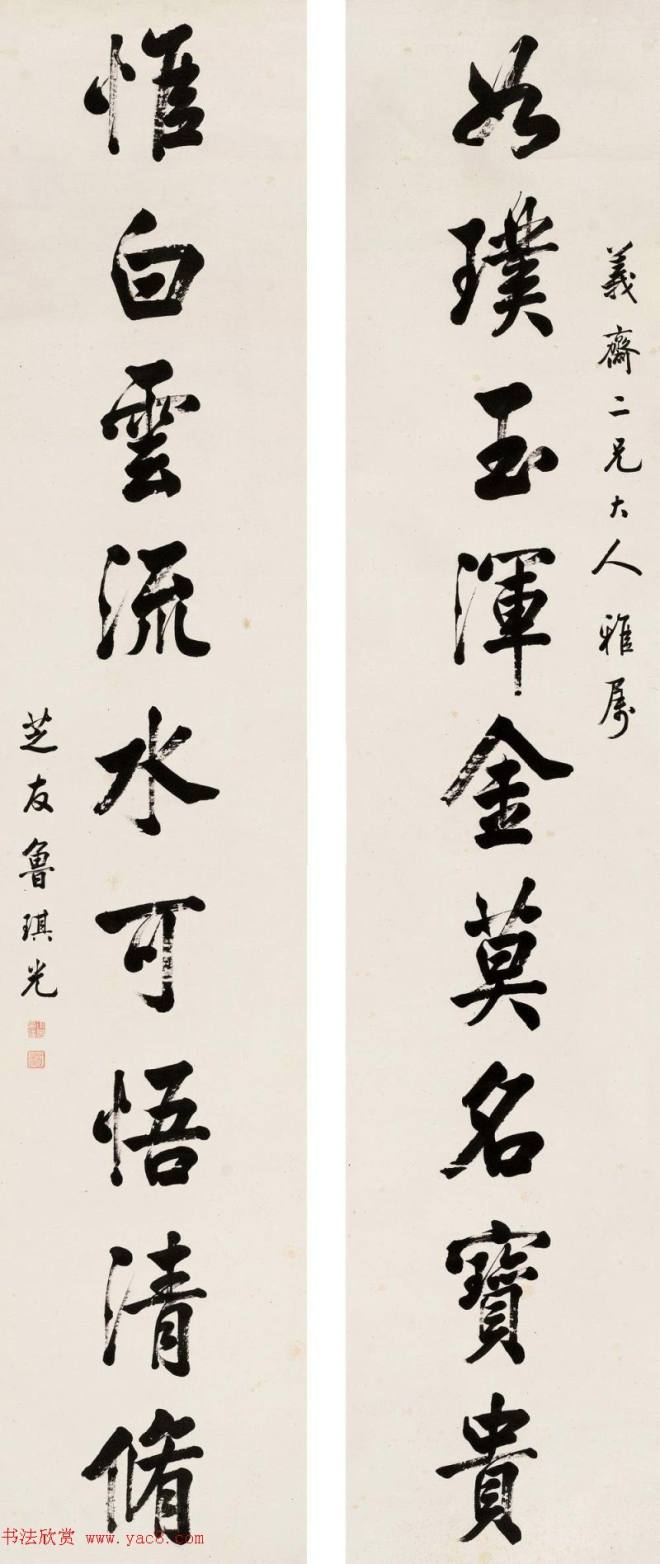 義齋二兄大人雅属
如璞玉渾金莫名寶貴
惟白雲流水可悟清脩
芝友魯琪光
书法欣赏 www.yac8.com